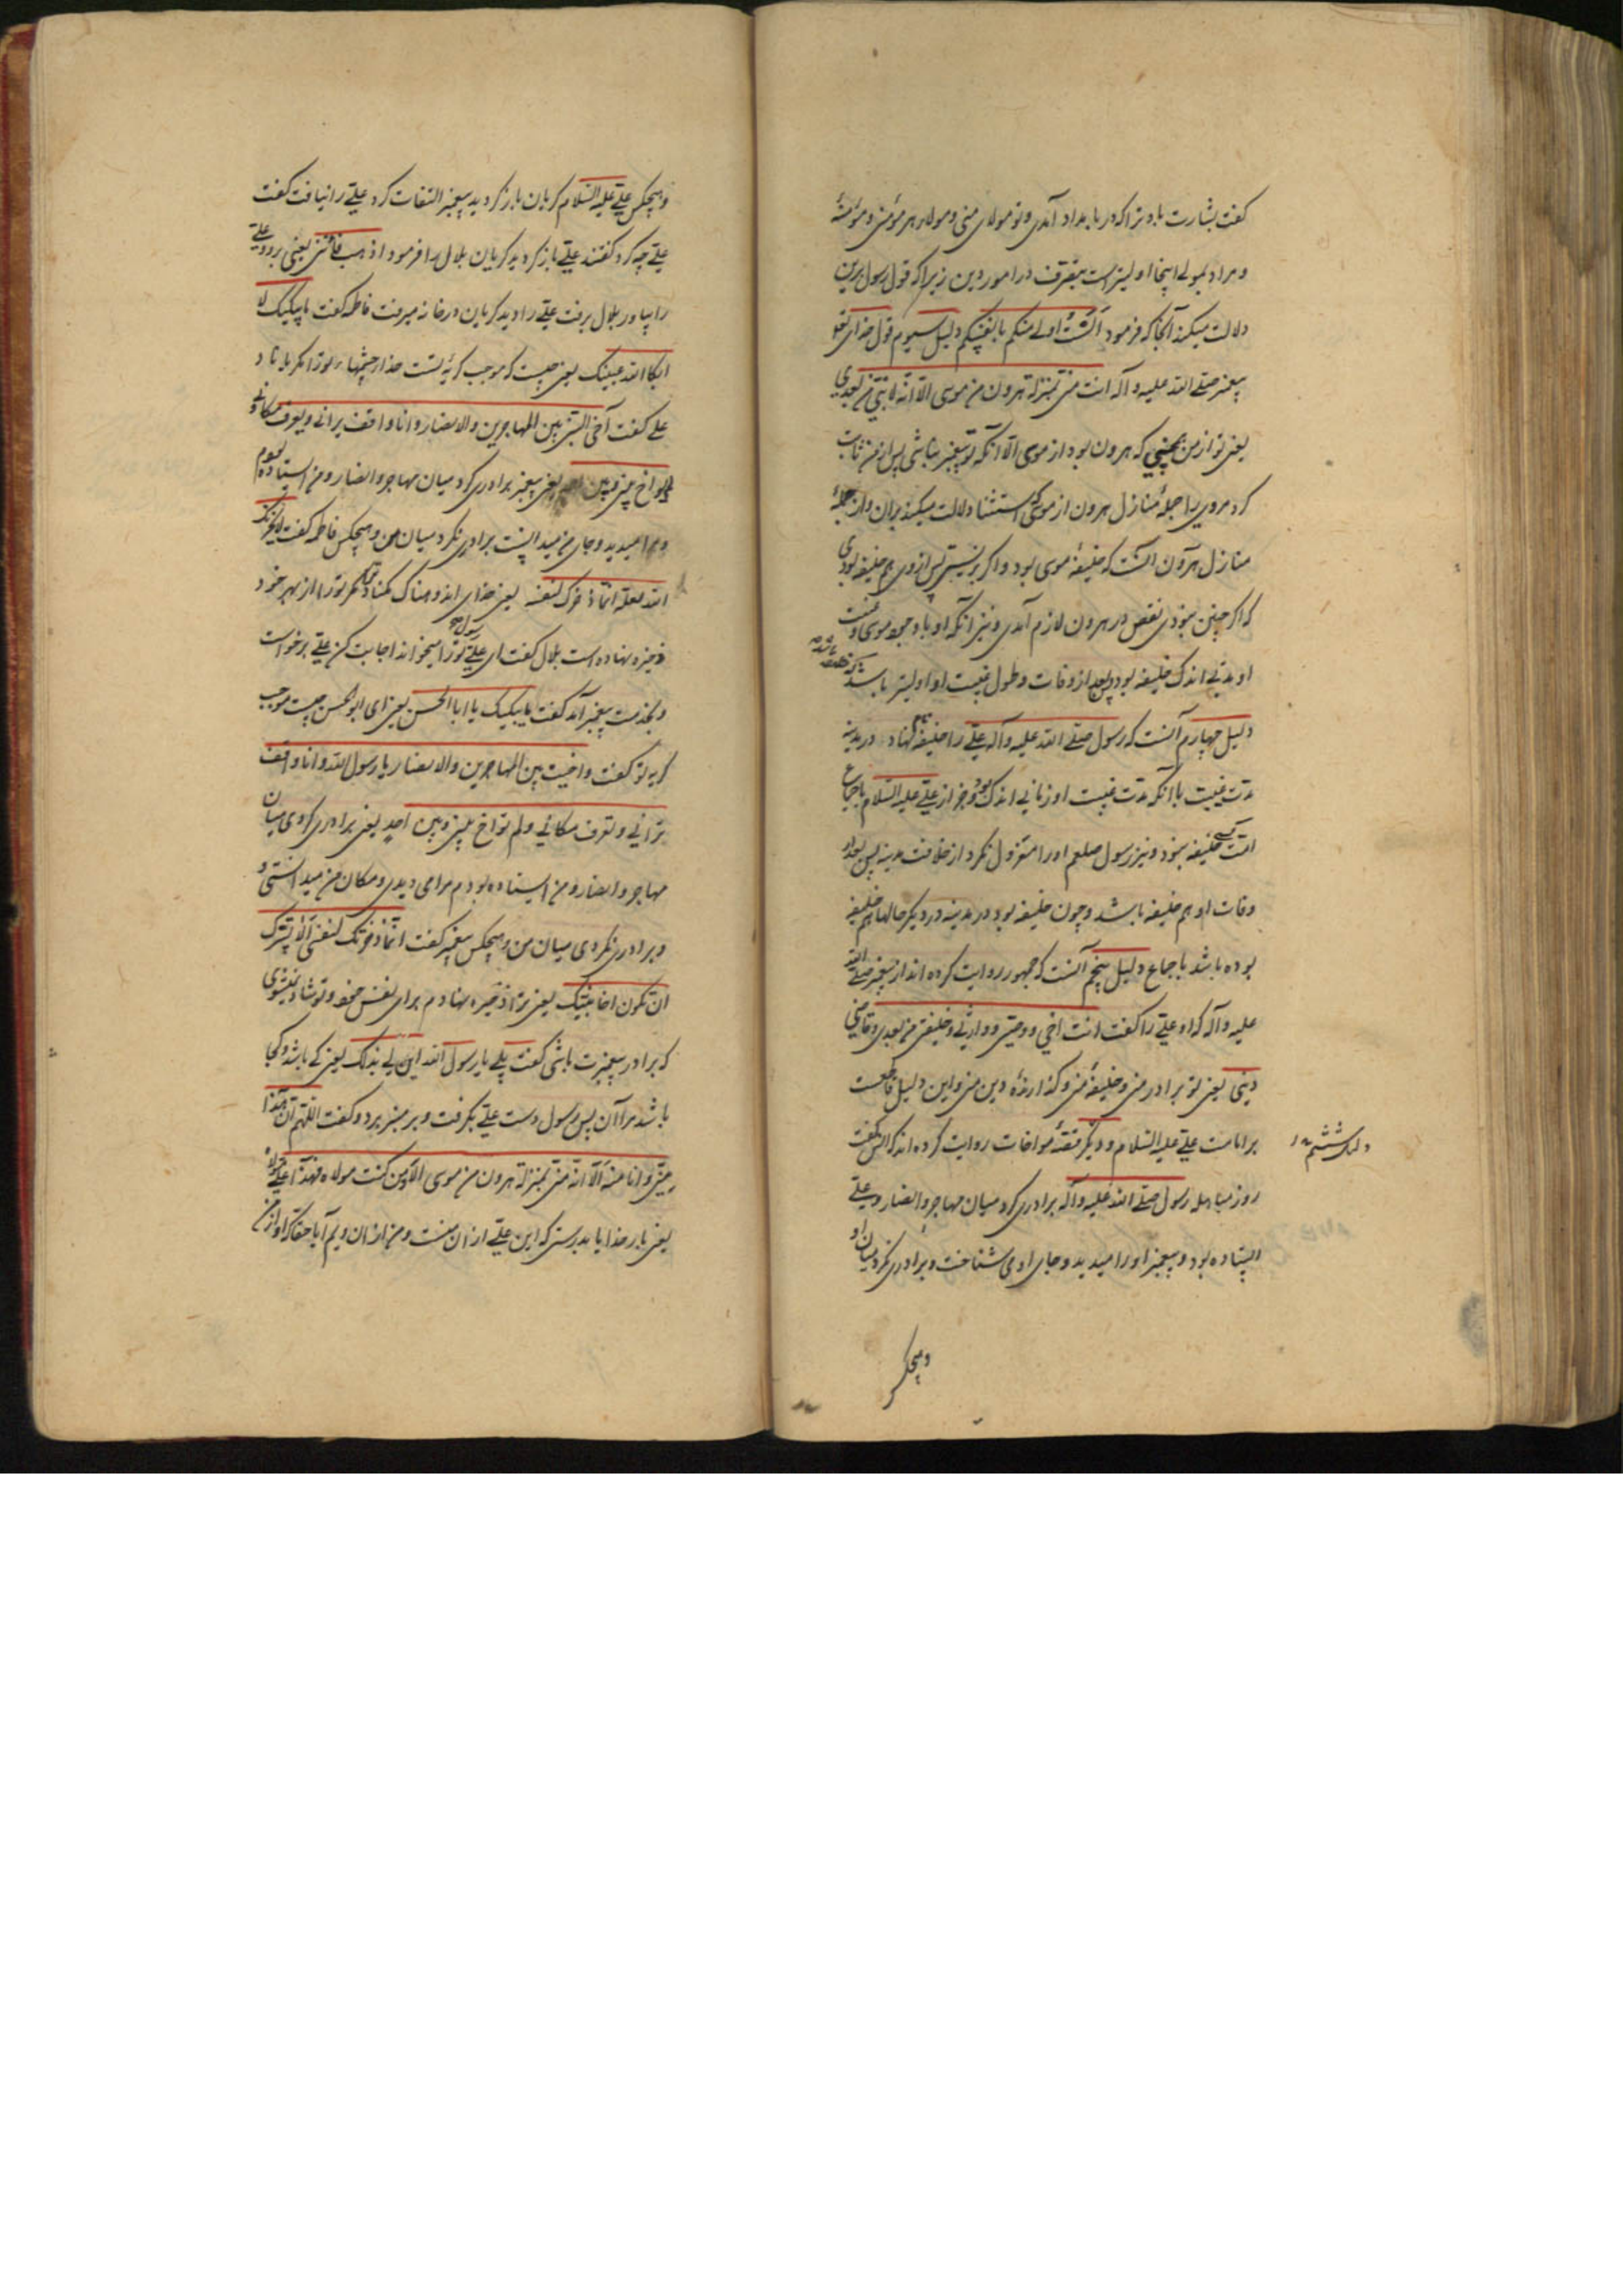 گفت بشارت باد ترا که در بامداد آمدی و تو مولای منی و مولاء هر مؤمن و مؤمنهٔ
و مراد بمولی اینجا اولیتر است بتصرف در امور دین زیرا که قول رسول برین
دلالت میکند آنجا که فرمود اَلَستُ اولی منکم بانفسکم دلیل سیوم قول
پیغمبر صلی الله علیه و آله انت منی بمنزلة هرون من موسی الا انه لا نبی من بعدی
یعنی تو از من همچنینی که هرون بود از موسی الا آنکه تو پیغمبر نباشی پس از من ثابت
کرد مر وی را جملهٔ منازل هرون از موسی که استثنا دلالت میکند بران و از جملهٔ
منازل هرون آنست که خلیفهٔ موسی بود و اگر بزیستی پس از وی هم خلیفه بودی
که اگر چنین نبودی نقص در هرون لازم آمدی و نیز آنکه او با وجود موسی و غیبت
او بمدتی اندک خلیفه بود پس بعد از وفات و طول غیبت او اولیتر باشد
دلیل چهارم آنست که رسول صلی الله علیه و آله علی را خلیفه کرد در مدینه
مدت غیبت با آنکه مدت غیبت او زمانی اندک بود و جز از علی علیه السلام باجماع
امت کسی خلیفه نبود و نیز رسول صلعم او را معزول نکرد از خلافت مدینه پس بعد از
وفات او هم خلیفه باشد و چون خلیفه بود در مدینه در دیگر حالها هم خلیفه
بوده باشد باجماع دلیل پنجم آنست که جمهور روایت کرده اند از پیغمبر صلی الله
علیه و آله که او علی را گفت انت اخی و وصیی و وارثی و خلیفتی من بعدی و قاضی
دینی یعنی تو برادر منی و خلیفهٔ منی و گذارندهٔ دین منی و این دلیل قاطعست
بر امامت علی علیه السلام و دیگر قصهٔ مواخات روایت کرده اند که انس گفت
دلیل ششم
روز مباهله رسول صلی الله علیه و آله برادری کرد میان مهاجر و انصار و علی
ایستاده بود و پیغمبر او را میدید و جای او می شناخت و برادری نکرد میان او
و هیچکس
و هیچکس علی علیه السلام گریان بازگردید پیغمبر التفات کرد علی را نیافت گفت
علی چه کرد گفتند علی بازگردید گریان بلال را فرمود اذهب فأتنی یعنی برو و علی
را بیاور بلال برفت علی را دید گریان در خانه میرفت فاطمه گفت ما یبکیک لا
ابکا الله عینیک یعنی چیست که موجب گریهٔ تست خدا چشمهاء تو را مگریاناد
علی گفت آخی النبی بین المهاجرین والانصار و انا واقف یرانی و یعرف مکانی و
لم یواخ بینی و بین احد یعنی پیغمبر برادری کرد میان مهاجر و انصار و من ایستاده بودم
و مرا میدید و جای من میدانست برادری نکرد میان من و هیچکس فاطمه گفت لا یحزنک
الله لعله انما ذخرک لنفسه یعنی خدای اندوهناک مکناد تو را مگر تو را از بهر خود
ذخیره نهاده است بلال گفت ای علی رسول تو را میخواند اجابت کن علی برخواست
و بخدمت پیغمبر آمد گفت ما یبکیک یا ابا الحسن یعنی ای ابو الحسن چیست موجب
گریه تو گفت واخیت بین المهاجرین والانصار یا رسول الله و انا واقف
ترانی و تعرف مکانی و لم تواخ بینی و بین احدٍ یعنی برادری کردی میان
مهاجر و انصار و من ایستاده بودم مرا می دیدی و مکان من میدانستی و
و برادری نکردی میان من و هیچکس پیغمبر گفت انما ذخرتک لنفسی الا یسرک
ان تکون اخا نبیک یعنی ترا ذخیره نهادم برای نفس خود و تو شاد نمیشوی
که برادر پیغمبرت باشی گفت بلی یا رسول الله این لی بذلک یعنی کی باشد و کجا
باشد مرا آن پس رسول دست علی بگرفت و بر منبر برد و گفت اللهم ان هذا
منی و انا منه الا انه منی بمنزلة هرون من موسی الا و من کنت مولاه فهذا علی مولاه
یعنی بار خدایا بدرستی که این علی از آن منست و من از آن ویم آیا حقا که او از من